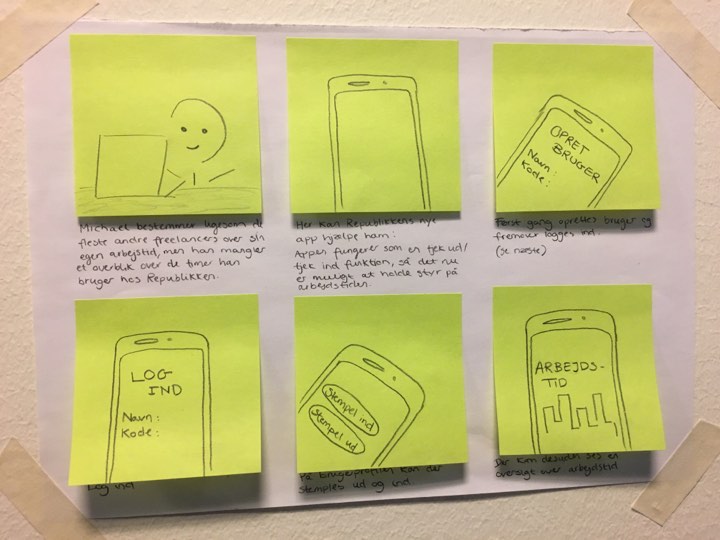 Michael bestemmer ligesom de
fleste andre freelancers over sin
egen arbejdstid, men han mangler
et overblik over de timer han
bruger hos Republikken.
Her kan Republikkens nye
app hjælpe ham:
Appen fungerer som en tjek ud/
tjek ind funktion, så det nu
er muligt at holde styr på
arbejdstiden.
OPRET
BRUGER
Navn:
Kode:
Først gang oprettes bruger og
fremover logges ind.
(se næste)
LOG
IND
Navn:
Kode:
Log ind
Stempel ind
Stempel ud
På brugerprofilen kan der
stemples ud og ind.
ARBEJDS-
TID
Der kan desuden ses en
oversigt over arbejdstid